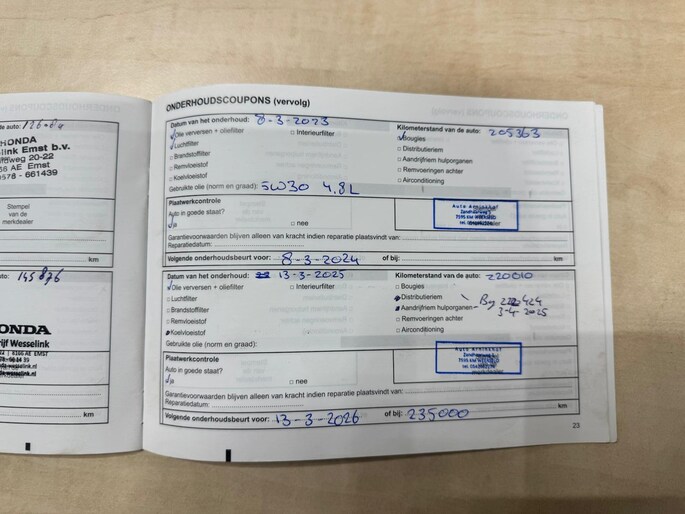 de auto: 126.84
HONDA
elink Emst b.v.
20-22
66 AE Emst
0578 - 661439
Stempel
van de
merkdealer
km
auto: 145 876
ONDA
rijf Wesselink
8166 AE EMST
km
ONDERHOUDSCOUPONS (vervolg)
Datum van het onderhoud: 8-3-2023 Kilometerstand van de auto: 205363
Olie verversen + oliefilter Interieurfilter Bougies
Luchtfilter Distributieriem
Brandstoffilter Aandrijfriem hulporganen
Remvloeistof Remvoeringen achter
Koelvloeistof Airconditioning
Gebruikte olie (norm en graad): 5W30 4.8L
Plaatwerkcontrole
Auto in goede staat?
ja nee
Garantievoorwaarden blijven alleen van kracht indien reparatie plaatsvindt van:
Reparatiedatum:
Volgende onderhoudsbeurt voor: 8-3-2024 of bij: km
Datum van het onderhoud: 13-3-2025 Kilometerstand van de auto: 220010
Olie verversen + oliefilter Interieurfilter Bougies
Luchtfilter Distributieriem
Brandstoffilter Aandrijfriem hulporganen
Remvloeistof Remvoeringen achter 3-4 2025
Koelvloeistof Airconditioning
Gebruikte olie (norm en graad):
Plaatwerkcontrole
Auto in goede staat?
ja nee
Garantievoorwaarden blijven alleen van kracht indien reparatie plaatsvindt van:
Reparatiedatum:
km
Volgende onderhoudsbeurt voor: 13-3-2026 of bij: 235000
23